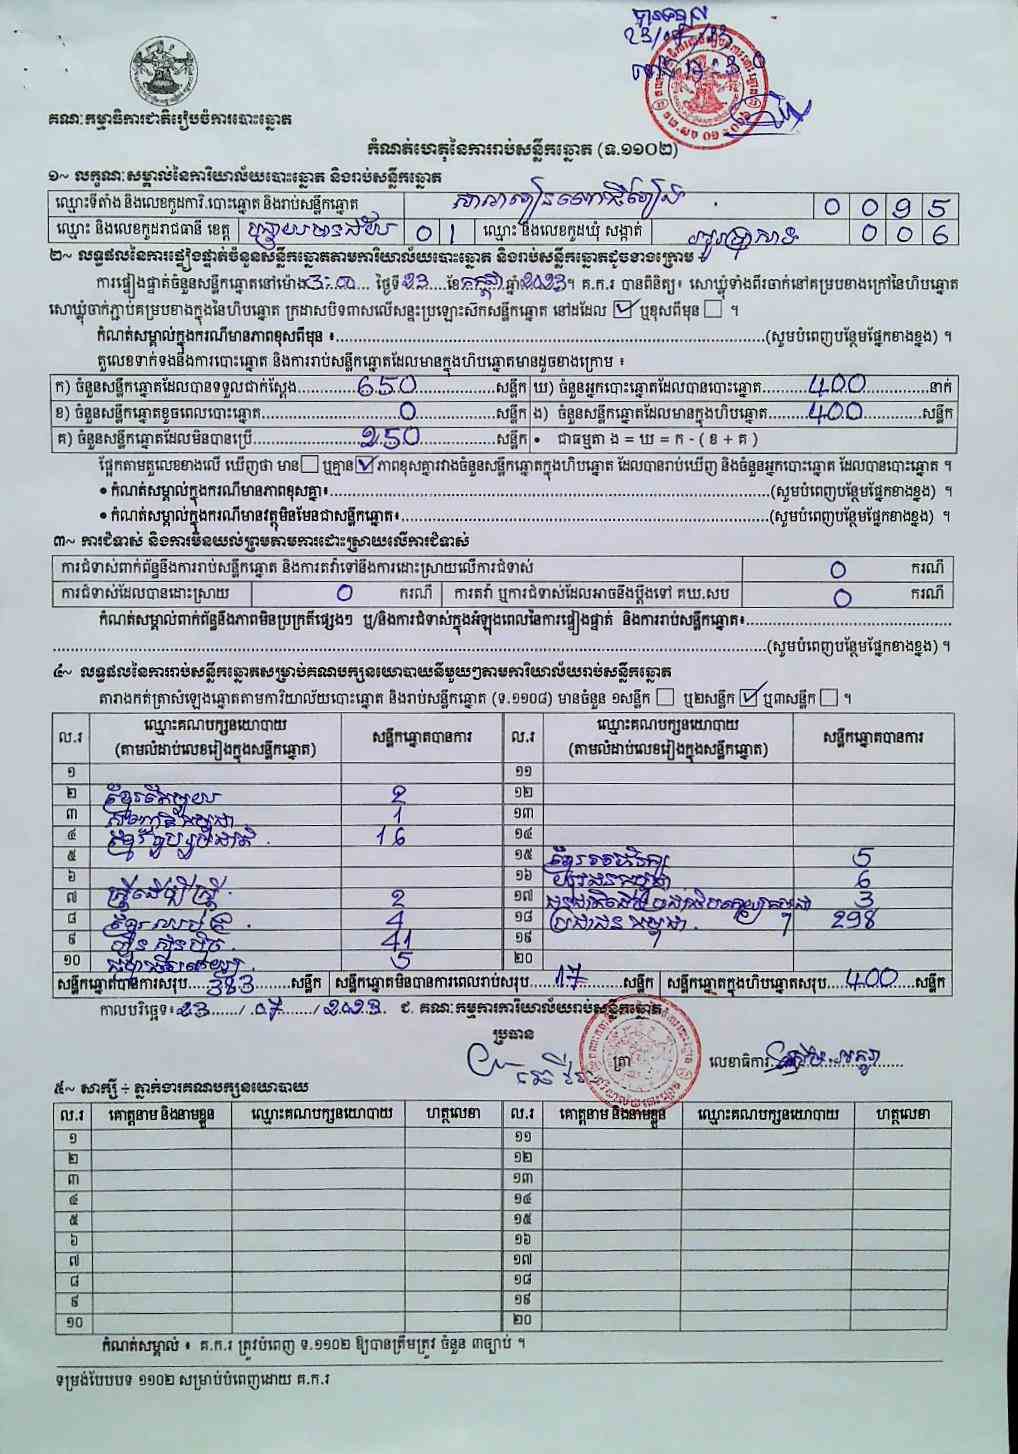 បានទទួល
23/07/23
គណៈកម្មាធិការជាតិរៀបចំការបោះឆ្នោត
កំណត់ហេតុនៃការរាប់សន្លឹកឆ្នោត (ទ.១១០២)
១~ លក្ខណៈសម្គាល់នៃការិយាល័យបោះឆ្នោត និងរាប់សន្លឹកឆ្នោត
ឈ្មោះទីតាំង និងលេខកូដការិ.បោះឆ្នោត និងរាប់សន្លឹកឆ្នោត សាលារៀន 0 0 9 5
ឈ្មោះ និងលេខកូដរាជធានី ខេត្ត បន្ទាយមានជ័យ 0 1 ឈ្មោះ និងលេខកូដឃុំ សង្កាត់ 0 0 6
២~ លទ្ធផលនៃការផ្ទៀងផ្ទាត់ចំនួនសន្លឹកឆ្នោតតាមការិយាល័យបោះឆ្នោត និងរាប់សន្លឹកឆ្នោតដូចខាងក្រោម ÷
ការផ្ទៀងផ្ទាត់ចំនួនសន្លឹកឆ្នោតនៅម៉ោង 3:00 ថ្ងៃទី 23 ខែ កក្កដា ឆ្នាំ 2023។ គ.ក.រ បានពិនិត្យ៖ សោឃ្លុំទាំងពីរចាក់នៅគម្របខាងក្រៅនៃហិបឆ្នោត
សោឃ្លុំចាក់ភ្ជាប់គម្របខាងក្នុងនៃហិបឆ្នោត ក្រដាសបិទពាសលើសន្ទះប្រឡោះស៊កសន្លឹកឆ្នោត នៅដដែល ☑ ឬខុសពីមុន ☐ ។
កំណត់សម្គាល់ក្នុងករណីមានភាពខុសពីមុន ៖ (សូមបំពេញបន្ថែមផ្នែកខាងខ្នង) ។
តួលេខទាក់ទងនឹងការបោះឆ្នោត និងការរាប់សន្លឹកឆ្នោតដែលមានក្នុងហិបឆ្នោតមានដូចខាងក្រោម ៖
ក) ចំនួនសន្លឹកឆ្នោតដែលបានទទួលជាក់ស្តែង 650 សន្លឹក ឃ) ចំនួនអ្នកបោះឆ្នោតដែលបានបោះឆ្នោត 400 នាក់
ខ) ចំនួនសន្លឹកឆ្នោតខូចពេលបោះឆ្នោត 0 សន្លឹក ង) ចំនួនសន្លឹកឆ្នោតដែលមានក្នុងហិបឆ្នោត 400 សន្លឹក
គ) ចំនួនសន្លឹកឆ្នោតដែលមិនបានប្រើ 250 សន្លឹក • ជាធម្មតា ង = ឃ = ក - ( ខ + គ )
ផ្អែកតាមតួលេខខាងលើ ឃើញថា មាន ☐ ឬគ្មាន ☑ ភាពខុសគ្នារវាងចំនួនសន្លឹកឆ្នោតក្នុងហិបឆ្នោត ដែលបានរាប់ឃើញ និងចំនួនអ្នកបោះឆ្នោត ដែលបានបោះឆ្នោត ។
• កំណត់សម្គាល់ក្នុងករណីមានភាពខុសគ្នា៖ (សូមបំពេញបន្ថែមផ្នែកខាងខ្នង) ។
• កំណត់សម្គាល់ក្នុងករណីមានវត្ថុមិនមែនជាសន្លឹកឆ្នោត៖ (សូមបំពេញបន្ថែមផ្នែកខាងខ្នង) ។
៣~ ការជំទាស់ និងការមិនយល់ព្រមតាមការដោះស្រាយលើការជំទាស់
ការជំទាស់ពាក់ព័ន្ធនឹងការរាប់សន្លឹកឆ្នោត និងការតវ៉ាទៅនឹងការដោះស្រាយលើការជំទាស់ 0 ករណី
ការជំទាស់ដែលបានដោះស្រាយ 0 ករណី ការតវ៉ា ឬការជំទាស់ដែលអាចនឹងប្តឹងទៅ គឃ.សប 0 ករណី
កំណត់សម្គាល់ពាក់ព័ន្ធនឹងភាពមិនប្រក្រតីផ្សេងៗ ឬ/និងការជំទាស់ក្នុងអំឡុងពេលនៃការផ្ទៀងផ្ទាត់ និងការរាប់សន្លឹកឆ្នោត៖
(សូមបំពេញបន្ថែមផ្នែកខាងខ្នង) ។
៤~ លទ្ធផលនៃការរាប់សន្លឹកឆ្នោតសម្រាប់គណបក្សនយោបាយនីមួយៗតាមការិយាល័យរាប់សន្លឹកឆ្នោត
តារាងកត់ត្រាសំឡេងឆ្នោតតាមការិយាល័យបោះឆ្នោត និងរាប់សន្លឹកឆ្នោត (ទ.១១០៨) មានចំនួន ១សន្លឹក ☐ ឬ២សន្លឹក ☑ ឬ៣សន្លឹក ☐ ។
ល.រ ឈ្មោះគណបក្សនយោបាយ (តាមលំដាប់លេខរៀងក្នុងសន្លឹកឆ្នោត) សន្លឹកឆ្នោតបានការ ល.រ ឈ្មោះគណបក្សនយោបាយ (តាមលំដាប់លេខរៀងក្នុងសន្លឹកឆ្នោត) សន្លឹកឆ្នោតបានការ
១ ១១
២ ខ្មែរតែមួយ 2 ១២
៣ 1 ១៣
៤ ខ្មែររួបរួមជាតិ 16 ១៤
៥ ១៥ 5
៦ ១៦ 6
៧ ស្ត្រីដើម្បីស្ត្រី 2 ១៧ 3
៨ 4 ១៨ ប្រជាជនកម្ពុជា 298
៩ ហ្វ៊ុនស៊ិនប៉ិច 41 ១៩
១០ 5 ២០
សន្លឹកឆ្នោតបានការសរុប 383 សន្លឹក សន្លឹកឆ្នោតមិនបានការពេលរាប់សរុប 17 សន្លឹក សន្លឹកឆ្នោតក្នុងហិបឆ្នោតសរុប 400 សន្លឹក
កាលបរិច្ឆេទ៖ 23 / 07 / 2023. ជ. គណៈកម្មការការិយាល័យរាប់សន្លឹកឆ្នោត
ប្រធាន
ត្រា លេខាធិការ
៥~ សាក្សី ÷ ភ្នាក់ងារគណបក្សនយោបាយ
ល.រ គោត្តនាម និងនាមខ្លួន ឈ្មោះគណបក្សនយោបាយ ហត្ថលេខា ល.រ គោត្តនាម និងនាមខ្លួន ឈ្មោះគណបក្សនយោបាយ ហត្ថលេខា
១ ១១
២ ១២
៣ ១៣
៤ ១៤
៥ ១៥
៦ ១៦
៧ ១៧
៨ ១៨
៩ ១៩
១០ ២០
កំណត់សម្គាល់ ៖ គ.ក.រ ត្រូវបំពេញ ទ.១១០២ ឱ្យបានត្រឹមត្រូវ ចំនួន ៣ច្បាប់ ។
ទម្រង់បែបបទ ១១០២ សម្រាប់បំពេញដោយ គ.ក.រ